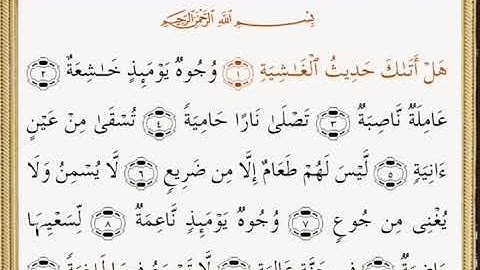 بِسْمِ اللَّهِ الرَّحْمَٰنِ الرَّحِيمِ
هَلْ أَتَىٰكَ حَدِيثُ الْغَٰشِيَةِ ١ وُجُوهٌ يَوْمَئِذٍ خَٰشِعَةٌ ٢
عَامِلَةٌ نَّاصِبَةٌ ٣ تَصْلَىٰ نَارًا حَامِيَةً ٤ تُسْقَىٰ مِنْ عَيْنٍ
ءَانِيَةٍ ٥ لَّيْسَ لَهُمْ طَعَامٌ إِلَّا مِن ضَرِيعٍ ٦ لَّا يُسْمِنُ وَلَا
يُغْنِى مِن جُوعٍ ٧ وُجُوهٌ يَوْمَئِذٍ نَّاعِمَةٌ ٨ لِّسَعْيِهَا